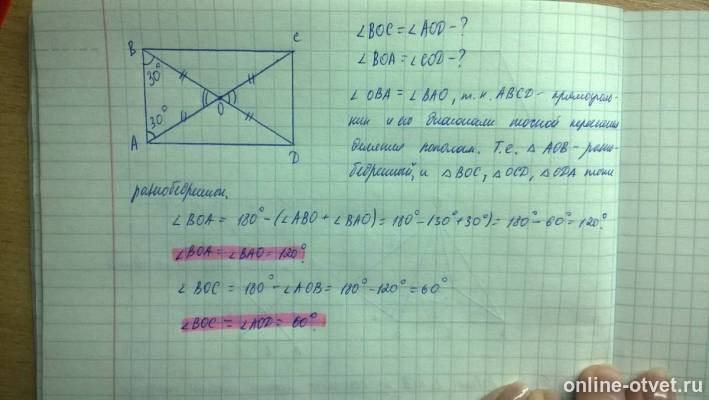 ∠BOC = ∠AOD - ?
∠BOA = ∠COD - ?
B
C
30°
30°
O
A
D
∠OBA = ∠BAO, т.к. ABCD - прямоуголь-
ник и его диагонали точкой пересечения
делятся пополам. Т.е. △AOB - равно-
бедренный, и △BOC, △OCD, △ODA тоже
равнобедренны.
∠BOA = 180° - (∠ABO + ∠BAO) = 180° - (30° + 30°) = 180° - 60° = 120°.
∠BOA = ∠BAO = 120°.
∠BOC = 180° - ∠AOB = 180° - 120° = 60°
∠BOC = ∠AOD = 60°.
online-otvet.ru